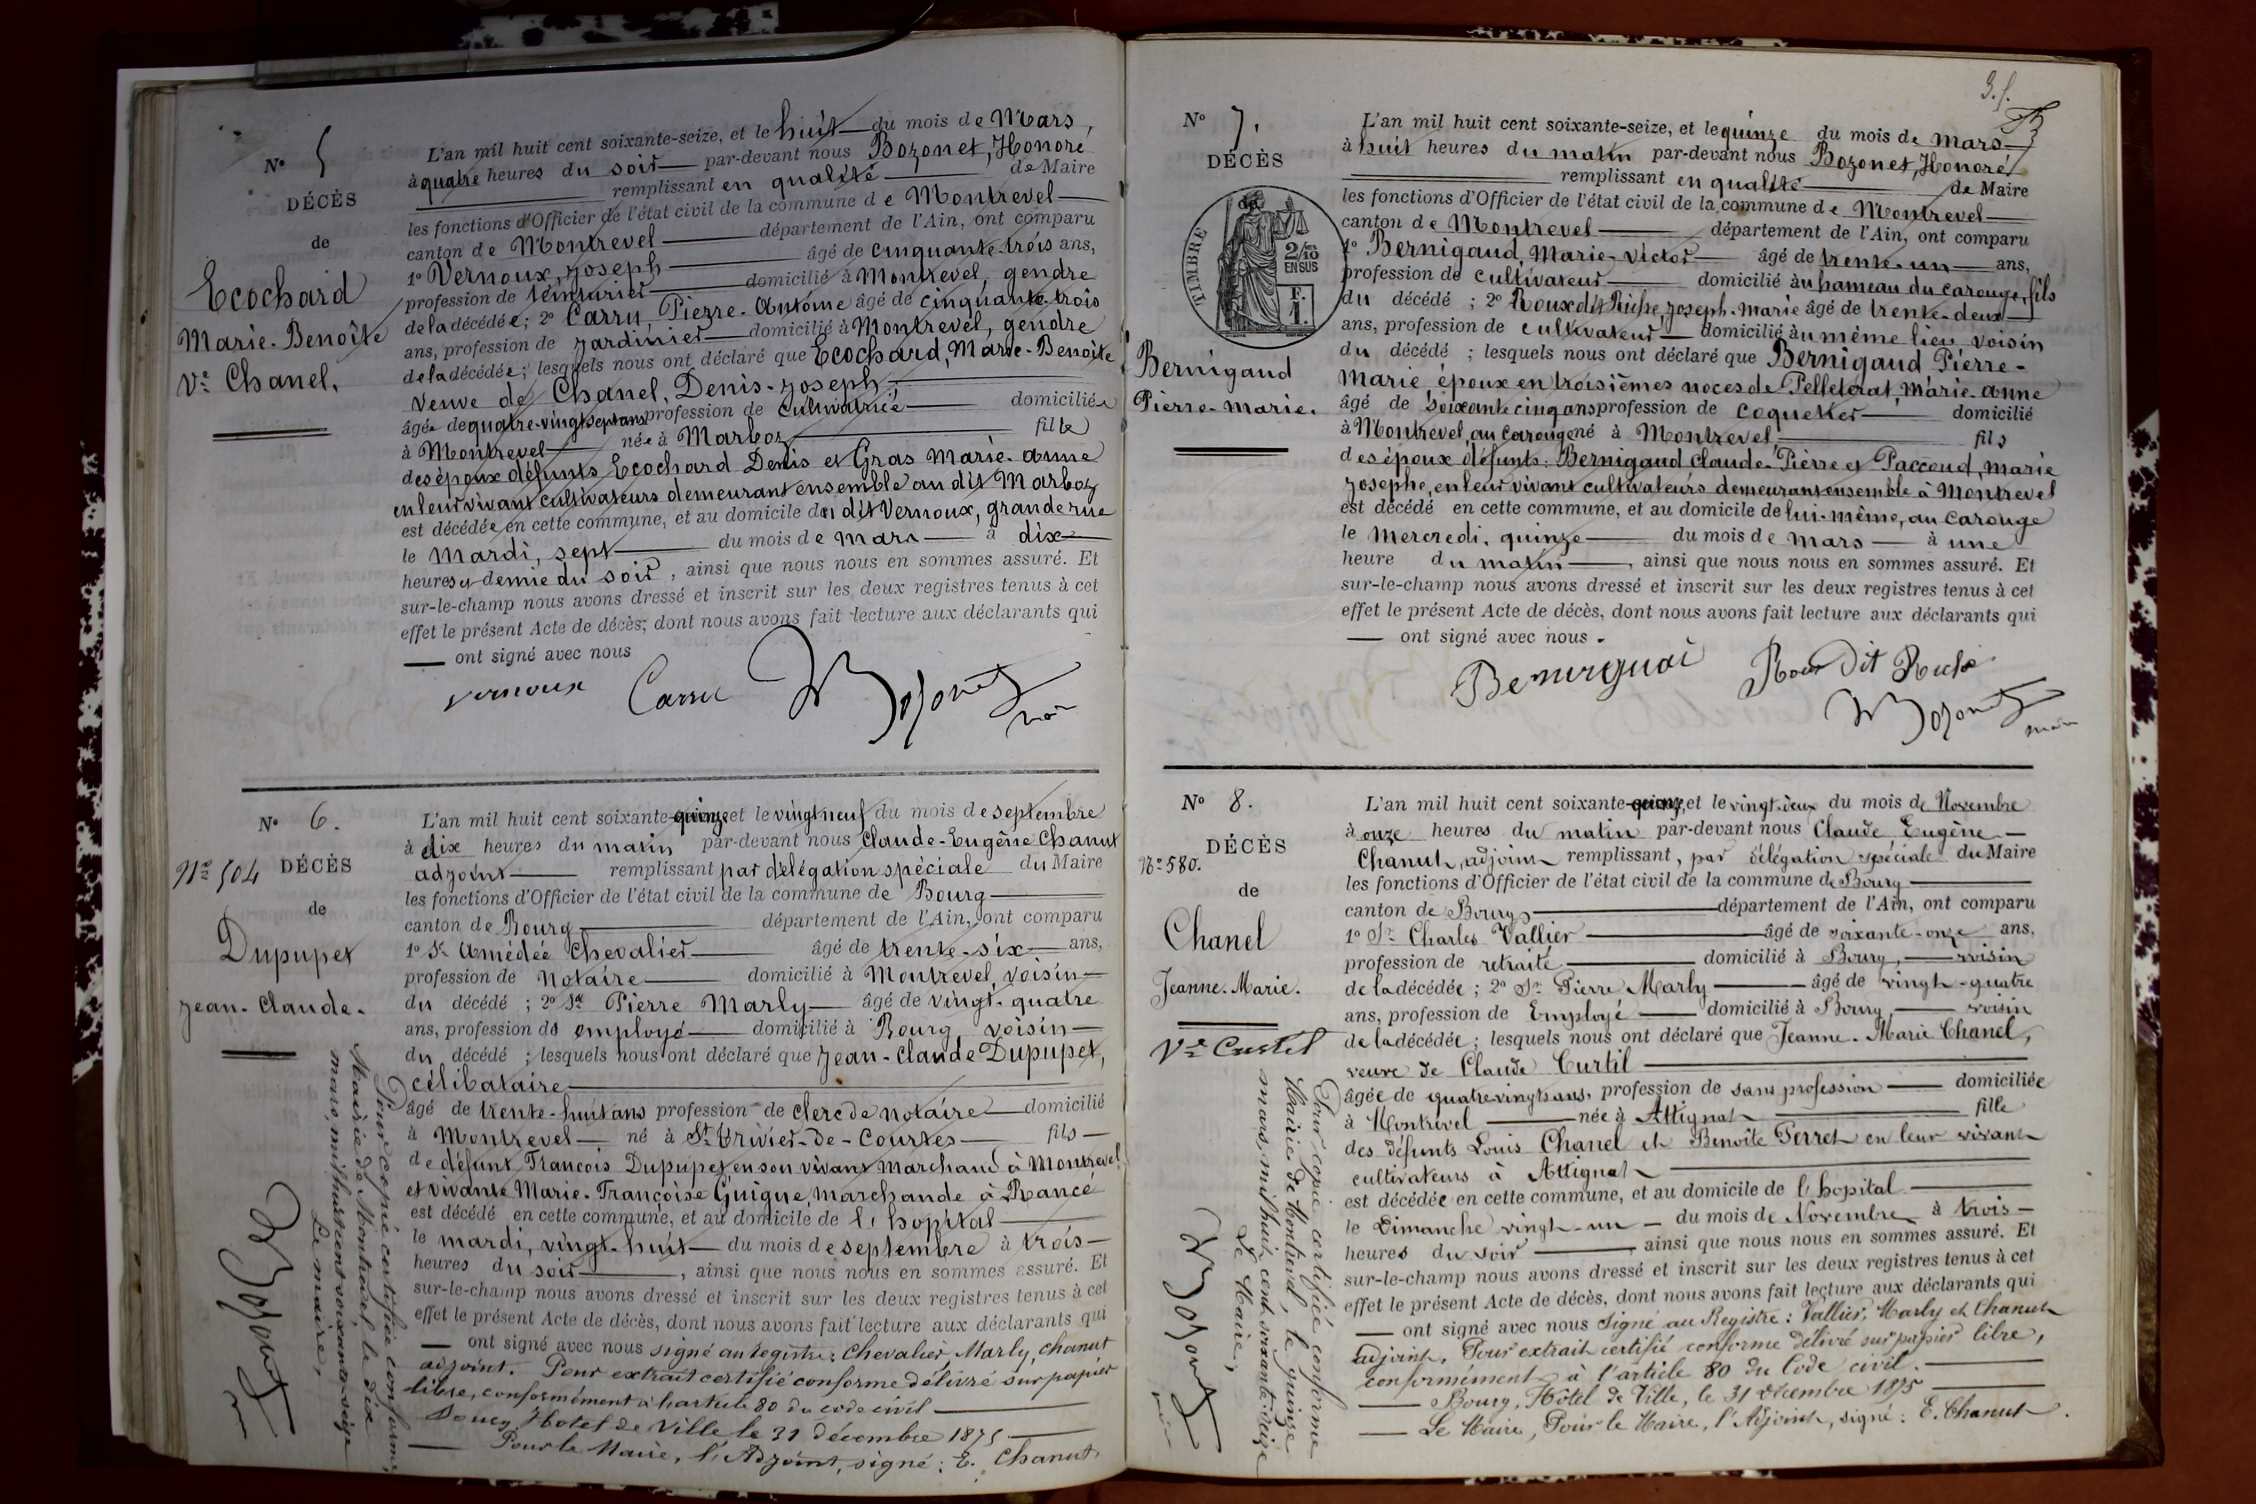 N° 5
DÉCÈS
de
Ecochard
Marie-Benoîte
Ve Chanel.
L'an mil huit cent soixante-seize, et le huit du mois de Mars,
à quatre heures du soir par-devant nous Bozonet, Honoré
remplissant en qualité de Maire
les fonctions d'Officier de l'état civil de la commune de Montrevel
canton de Montrevel département de l'Ain, ont comparu
1° Vernoux, Joseph âgé de cinquante-trois ans,
profession de teinturier domicilié à Montrevel, gendre
de la décédée; 2° Carru, Pierre-Antoine âgé de cinquante-trois
ans, profession de jardinier domicilié à Montrevel, gendre
de la décédée; lesquels nous ont déclaré que Ecochard, Marie-Benoîte
veuve de Chanel, Denis-Joseph,
âgée de quatre-vingt sept ans profession de cultivatrice domiciliée
à Montrevel née à Marboz fille
des époux défunts Ecochard Denis et Gras Marie-Anne
en leur vivant cultivateurs demeurant ensemble au dit Marboz
est décédée en cette commune, et au domicile du dit Vernoux, grande rue
le Mardi, sept du mois de mars à dix
heures et demie du soir, ainsi que nous nous en sommes assuré. Et
sur-le-champ nous avons dressé et inscrit sur les deux registres tenus à cet
effet le présent Acte de décès; dont nous avons fait lecture aux déclarants qui
ont signé avec nous
vernoux Carru Bozonet
N° 6.
N° 504
DÉCÈS
de
Dupupet
Jean-Claude.
L'an mil huit cent soixante-quinze et le vingt neuf du mois de septembre
à dix heures du matin par-devant nous Claude-Eugène Chanut
adjoint remplissant par délégation spéciale du Maire
les fonctions d'Officier de l'état civil de la commune de Bourg
canton de Bourg département de l'Ain, ont comparu
1° Sr Amédée Chevalier âgé de trente-six ans,
profession de notaire domicilié à Montrevel, voisin
du décédé; 2° Sr Pierre Marly âgé de vingt-quatre
ans, profession de employé domicilié à Bourg voisin
du décédé; lesquels nous ont déclaré que Jean-Claude Dupupet,
célibataire
âgé de trente-huit ans profession de clerc de notaire domicilié
à Montrevel né à St Trivier-de-Courtes fils
de défunt François Dupupet en son vivant marchand à Montrevel
et vivante Marie-Françoise Guigue, marchande à Rancé
est décédé en cette commune, et au domicile de l'hopital
le mardi, vingt-huit du mois de septembre à trois
heures du soir, ainsi que nous nous en sommes assuré. Et
sur-le-champ nous avons dressé et inscrit sur les deux registres tenus à cet
effet le présent Acte de décès, dont nous avons fait lecture aux déclarants qui
ont signé avec nous signé au registre: Chevalier, Marly, Chanut
adjoint. Pour extrait certifié conforme délivré sur papier
libre, conformément à l'article 80 du code civil
Bourg, Hotel de Ville le 31 décembre 1875
Pour le Maire, l'Adjoint, signé: E. Chanut
Pour copie certifiée conforme,
Mairie de Montrevel, le dix
mars, mil huit cent soixante-seize
Le maire,
Bozonet
3. f.
N° 7.
DÉCÈS
TIMBRE
2/10
EN SUS
F.
1
Bernigaud
Pierre-Marie.
L'an mil huit cent soixante-seize, et le quinze du mois de mars
à huit heures du matin par-devant nous Bozonet, Honoré
remplissant en qualité de Maire
les fonctions d'Officier de l'état civil de la commune de Montrevel
canton de Montrevel département de l'Ain, ont comparu
1° Bernigaud, Marie-Victor âgé de trente-un ans,
profession de cultivateur domicilié au hameau du carouge, fils
du décédé; 2° Roux dit Riche, Joseph-Marie âgé de trente-deux
ans, profession de cultivateur domicilié au même lieu voisin
du décédé; lesquels nous ont déclaré que Bernigaud Pierre-
Marie, époux en troisièmes noces de Pelleterat, Marie-Anne
âgé de soixante cinq ans profession de coquetier domicilié
à Montrevel, au Carouge né à Montrevel fils
des époux défunts: Bernigaud Claude-Pierre et Paccoud, Marie
Josephe, en leur vivant cultivateurs demeurant ensemble à Montrevel
est décédé en cette commune, et au domicile de lui-même, au Carouge
le Mercredi, quinze du mois de mars à une
heure du matin, ainsi que nous nous en sommes assuré. Et
sur-le-champ nous avons dressé et inscrit sur les deux registres tenus à cet
effet le présent Acte de décès, dont nous avons fait lecture aux déclarants qui
ont signé avec nous.
Roux Dit Riche
Bozonet
N° 8.
DÉCÈS
N° 580.
de
Chanel
Jeanne-Marie.
Ve Curtil
L'an mil huit cent soixante-quinze, et le vingt-deux du mois de Novembre
à onze heures du matin par-devant nous Claude Eugène
Chanut, adjoint remplissant, par délégation spéciale du Maire
les fonctions d'Officier de l'état civil de la commune de Bourg
canton de Bourg département de l'Ain, ont comparu
1° Sr Charles Vallier âgé de soixante-onze ans,
profession de retraité domicilié à Bourg, voisin
de la décédée; 2° Sr Pierre Marly âgé de vingt-quatre
ans, profession de Employé domicilié à Bourg, voisin
de la décédée; lesquels nous ont déclaré que Jeanne-Marie Chanel,
veuve de Claude Curtil
âgée de quatre vingts ans, profession de sans profession domiciliée
à Montrevel née à Attignat fille
des défunts Louis Chanel et Benoîte Perret en leur vivant
cultivateurs à Attignat
est décédée en cette commune, et au domicile de l'hopital
le Dimanche vingt-un du mois de Novembre à trois
heures du soir, ainsi que nous nous en sommes assuré. Et
sur-le-champ nous avons dressé et inscrit sur les deux registres tenus à cet
effet le présent Acte de décès, dont nous avons fait lecture aux déclarants qui
ont signé avec nous Signé au Registre: Vallier, Marly et Chanut
adjoint. Pour extrait certifié conforme délivré sur papier libre,
conformément à l'article 80 du Code civil.
Bourg, Hôtel de Ville, le 31 Décembre 1875
Le Maire, Pour le Maire, l'Adjoint, signé: E. Chanut.
Pour copie certifiée conforme
Mairie de Montrevel, le quinze
mars, mil huit cent soixante-seize
Le Maire,
Bozonet